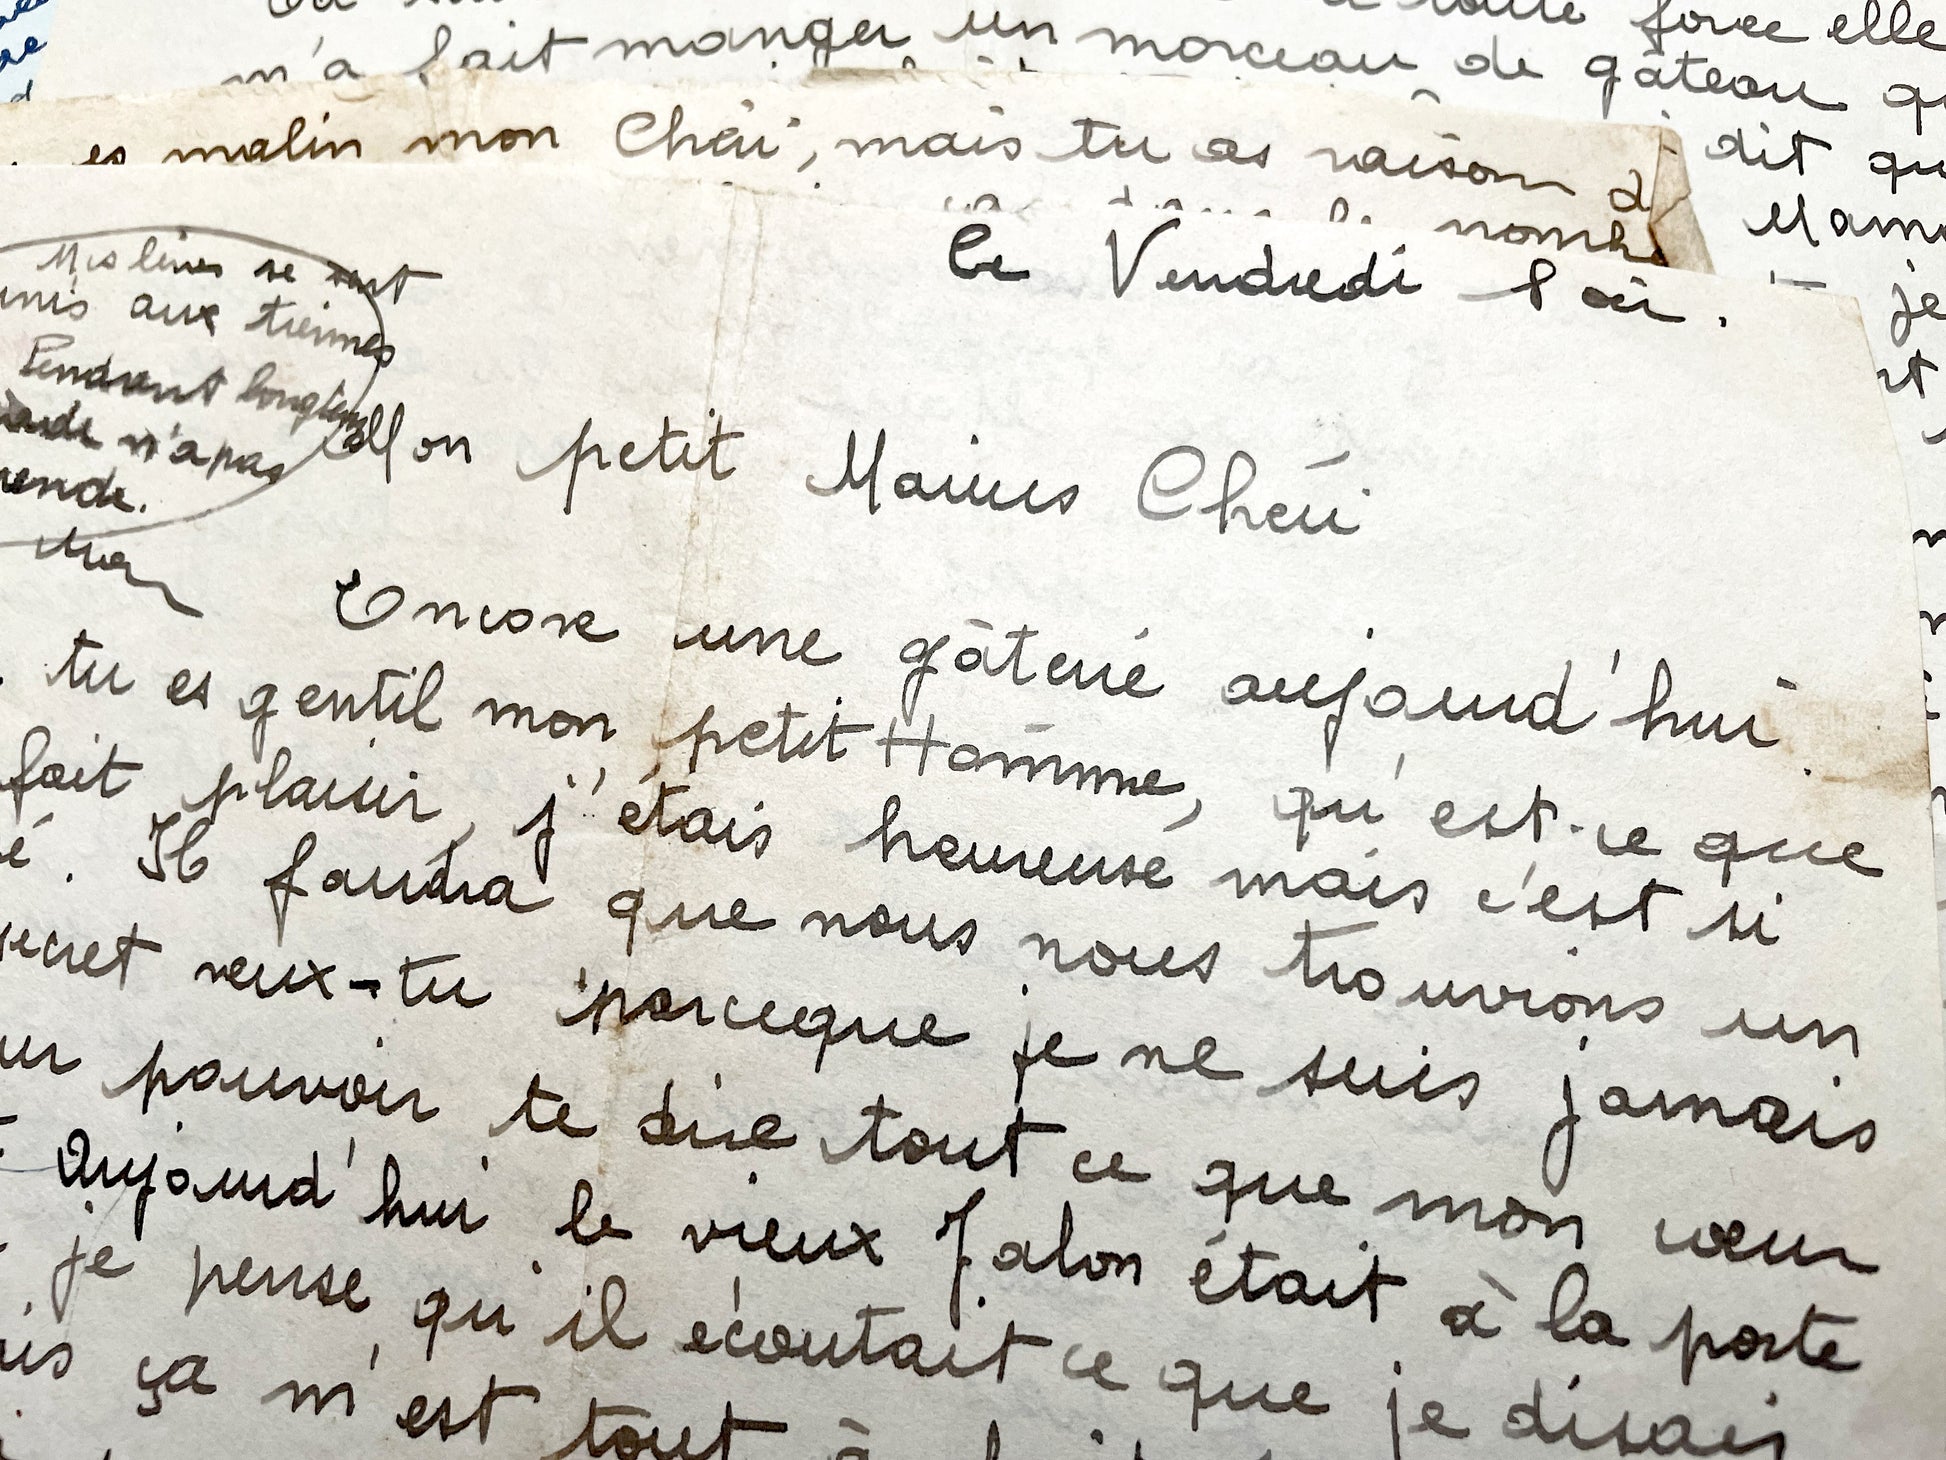 m'a fait manger un morceau de gâteau
force elle
es malin mon Chéri, mais tu as raison
dit
je
Le Vendredi Soir.
Mes lèvres se sont
unis aux tiennes
Pendant
n'a pas
Mon petit Marius Chéri
Encore une gâterie aujourd'hui
tu es gentil mon petit Homme, qu'est-ce que
fait plaisir, j'étais heureuse mais c'est si
é. Il faudra que nous nous trouvions un
secret veux-tu parceque je ne suis jamais
pouvoir te dire tout ce que mon cœur
Aujourd'hui le vieux Jalon était à la porte
je pense qu'il écoutait ce que je disais
ça m'est tout à